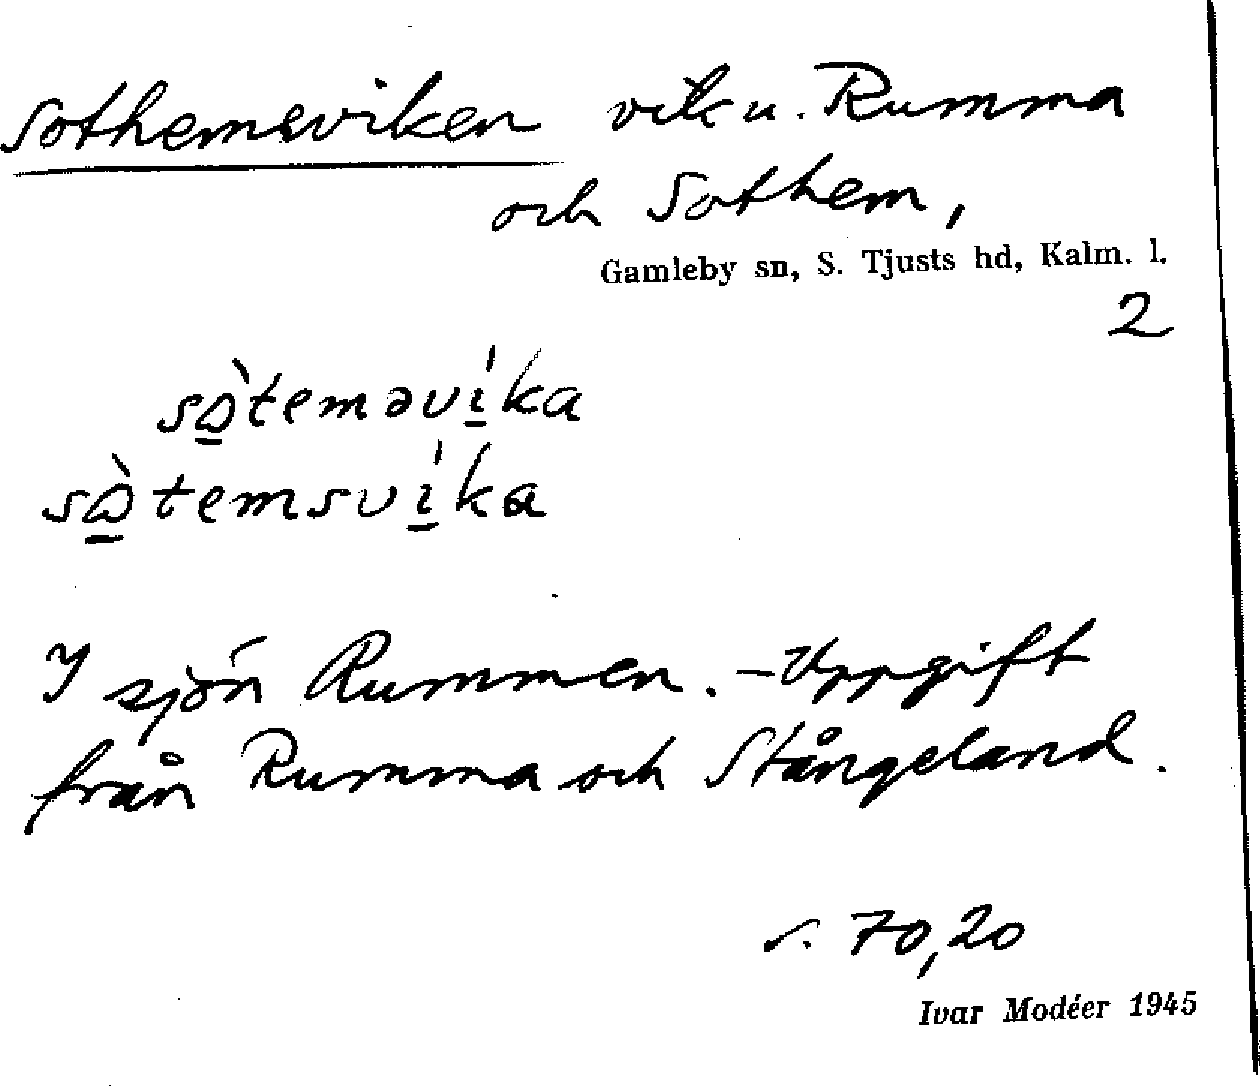 Sothemsviken vik u. Rumma
och Sothem,
Gamleby sn, S. Tjusts hd, Kalm. l.
2
sὼ̲teməví̲ka
sὼ̲temsví̲ka
I sjön Rummen. – Uppgift
från Rumma och Stångeland.
s. 70,20
Ivar Modéer 1945